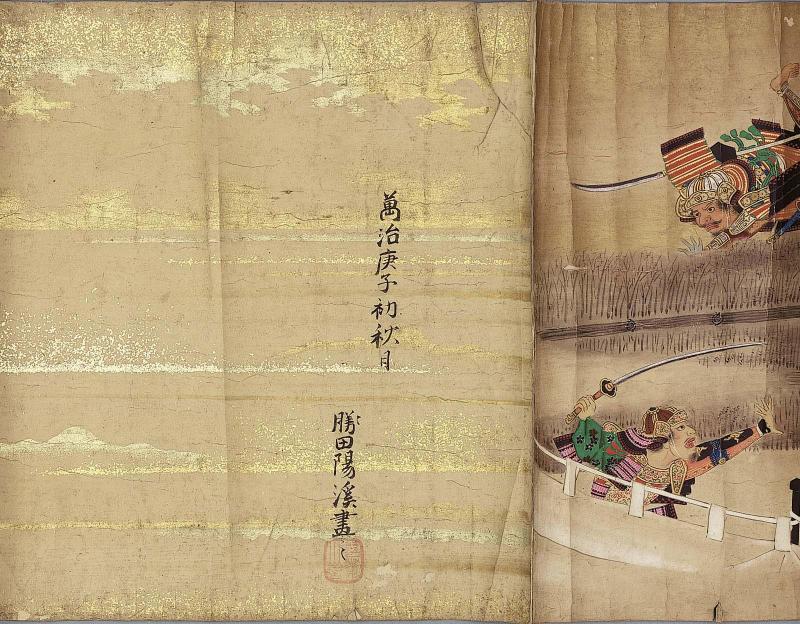 萬治庚子初秋月
勝田陽溪畫之